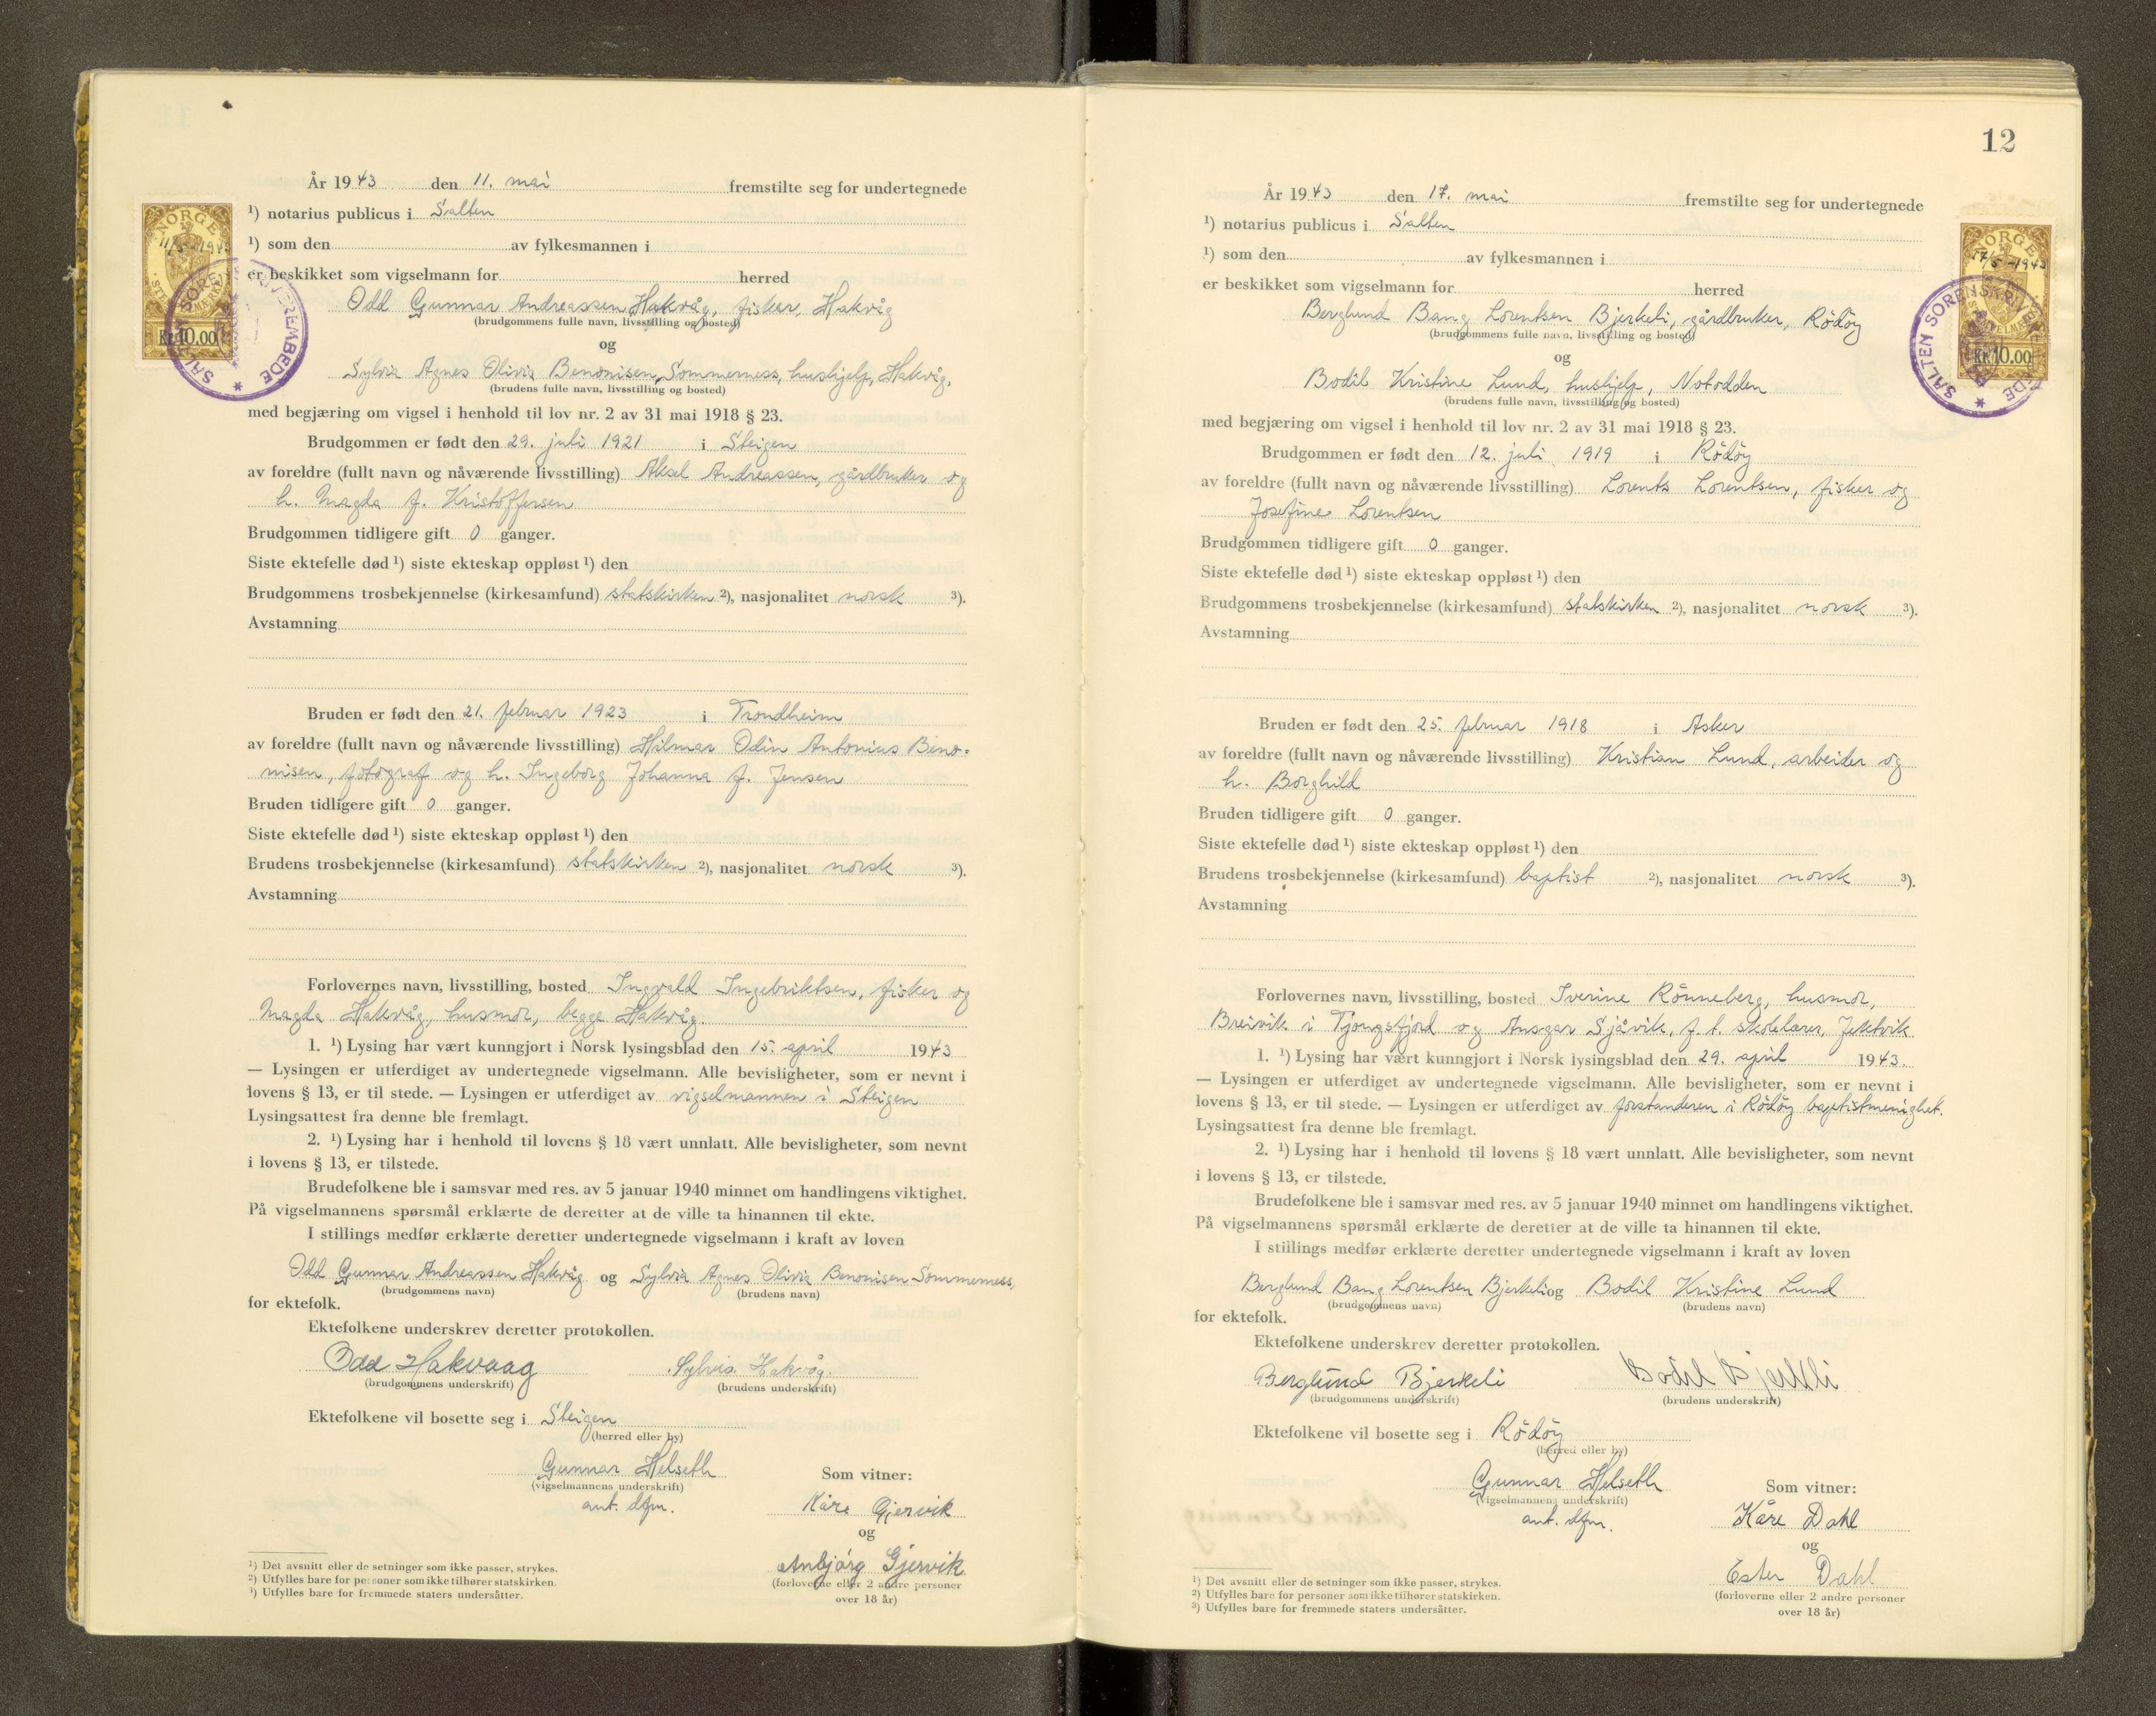 År 1943 den 11. mai fremstilte seg for undertegnede
¹) notarius publicus i Salten
¹) som den av fylkesmannen i
er beskikket som vigselmann for herred
Odd Gunnar Andreassen Hakvåg, fisker, Hakvåg
(brudgommens fulle navn, livsstilling og bosted)
og
Sylvia Agnes Olivia Benonisen, Sommerness, hushjelp, Hakvåg,
(brudens fulle navn, livsstilling og bosted)
med begjæring om vigsel i henhold til lov nr. 2 av 31 mai 1918 § 23.
Brudgommen er født den 29. juli 1921 i Steigen
av foreldre (fullt navn og nåværende livsstilling) Aksel Andreassen, gårdbruker og
h. Magda f. Kristoffersen
Brudgommen tidligere gift 0 ganger.
Siste ektefelle død ¹) siste ekteskap oppløst ¹) den
Brudgommens trosbekjennelse (kirkesamfund) statskirken ²), nasjonalitet norsk ³).
Avstamning
Bruden er født den 21. februar 1923 i Trondheim
av foreldre (fullt navn og nåværende livsstilling) Hilmar Odin Antonius Beno=
nisen, fotograf og h. Ingeborg Johanna f. Jensen
Bruden tidligere gift 0 ganger.
Siste ektefelle død ¹) siste ekteskap oppløst ¹) den
Brudens trosbekjennelse (kirkesamfund) statskirken ²), nasjonalitet norsk ³).
Avstamning
Forlovernes navn, livsstilling, bosted Ingvald Ingebriktsen, fisker og
Magda Hakvåg, husmor, begge Hakvåg.
1. ¹) Lysing har vært kunngjort i Norsk lysingsblad den 15. april 1943
— Lysingen er utferdiget av undertegnede vigselmann. Alle bevisligheter, som er nevnt i
lovens § 13, er til stede. — Lysingen er utferdiget av vigselmannen i Steigen
Lysingsattest fra denne ble fremlagt.
2. ¹) Lysing har i henhold til lovens § 18 vært unnlatt. Alle bevisligheter, som nevnt
i lovens § 13, er tilstede.
Brudefolkene ble i samsvar med res. av 5 januar 1940 minnet om handlingens viktighet.
På vigselmannens spørsmål erklærte de deretter at de ville ta hinannen til ekte.
I stillings medfør erklærte deretter undertegnede vigselmann i kraft av loven
Odd Gunnar Andreassen Hakvåg og Sylvia Agnes Olivia Benonisen-Sommerness,
(brudgommens navn) (brudens navn)
for ektefolk.
Ektefolkene underskrev deretter protokollen.
Odd Hakvaag Sylvia Hakvåg.
(brudgommens underskrift) (brudens underskrift)
Ektefolkene vil bosette seg i Steigen
(herred eller by)
Gunnar Helseth
(vigselmannens underskrift)
aut. dfm.
Som vitner:
Kåre Gjervik
og
Anbjörg Gjervik
(forloverne eller 2 andre personer
over 18 år)
¹) Det avsnitt eller de setninger som ikke passer, strykes.
²) Utfylles bare for personer som ikke tilhører statskirken.
³) Utfylles bare for fremmede staters undersåtter.
NORGE
11/5-1943
Kr. 10.00
SALTEN SORENSKRIVEREMBEDE
12
År 1943 den 17. mai fremstilte seg for undertegnede
¹) notarius publicus i Salten
¹) som den av fylkesmannen i
er beskikket som vigselmann for herred
Berglund Bang Lorentsen Bjerkeli, gårdbruker, Rödöy
(brudgommens fulle navn, livsstilling og bosted)
og
Bodil Kristine Lund, hushjelp, Notodden
(brudens fulle navn, livsstilling og bosted)
med begjæring om vigsel i henhold til lov nr. 2 av 31 mai 1918 § 23.
Brudgommen er født den 12. juli 1919 i Rödöy
av foreldre (fullt navn og nåværende livsstilling) Lorents Lorentsen, fisker og
Josefine Lorentsen
Brudgommen tidligere gift 0 ganger.
Siste ektefelle død ¹) siste ekteskap oppløst ¹) den
Brudgommens trosbekjennelse (kirkesamfund) statskirken ²), nasjonalitet norsk ³).
Avstamning
Bruden er født den 25. februar 1918 i Asker
av foreldre (fullt navn og nåværende livsstilling) Kristian Lund, arbeider og
h. Borghild
Bruden tidligere gift 0 ganger.
Siste ektefelle død ¹) siste ekteskap oppløst ¹) den
Brudens trosbekjennelse (kirkesamfund) baptist ²), nasjonalitet norsk ³).
Avstamning
Forlovernes navn, livsstilling, bosted Iverine Rönneberg, husmor,
Breivik i Tjongsfjord og Ansgar Sjåvik, f. t. skolelærer, Jektvik
1. ¹) Lysing har vært kunngjort i Norsk lysingsblad den 29. april 1943.
— Lysingen er utferdiget av undertegnede vigselmann. Alle bevisligheter, som er nevnt i
lovens § 13, er til stede. — Lysingen er utferdiget av forstanderen i Rödöy baptistmenighet.
Lysingsattest fra denne ble fremlagt.
2. ¹) Lysing har i henhold til lovens § 18 vært unnlatt. Alle bevisligheter, som nevnt
i lovens § 13, er tilstede.
Brudefolkene ble i samsvar med res. av 5 januar 1940 minnet om handlingens viktighet.
På vigselmannens spørsmål erklærte de deretter at de ville ta hinannen til ekte.
I stillings medfør erklærte deretter undertegnede vigselmann i kraft av loven
Berglund Bang Lorentsen Bjerkeli og Bodil Kristine Lund
(brudgommens navn) (brudens navn)
for ektefolk.
Ektefolkene underskrev deretter protokollen.
Berglund Bjerkeli Bodil Bjerkeli
(brudgommens underskrift) (brudens underskrift)
Ektefolkene vil bosette seg i Rödöy
(herred eller by)
Gunnar Helseth
(vigselmannens underskrift)
aut. dfm.
Som vitner:
Kåre Dahl
og
Ester Dahl
(forloverne eller 2 andre personer
over 18 år)
¹) Det avsnitt eller de setninger som ikke passer, strykes.
²) Utfylles bare for personer som ikke tilhører statskirken.
³) Utfylles bare for fremmede staters undersåtter.
NORGE
17/5-1943
Kr. 10.00
SALTEN SORENSKRIVEREMBEDE